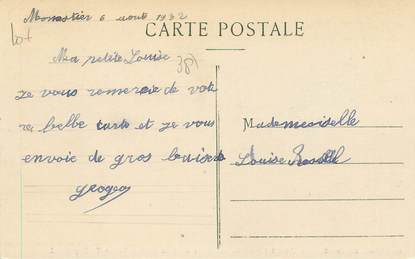 Monastier 6 aout 1932
CARTE POSTALE
lot
Ma petite Louise
387
je vous remercie de vot
re belle carte et je vous
envoie de gros baisers
Mademoiselle
Louise
Georges